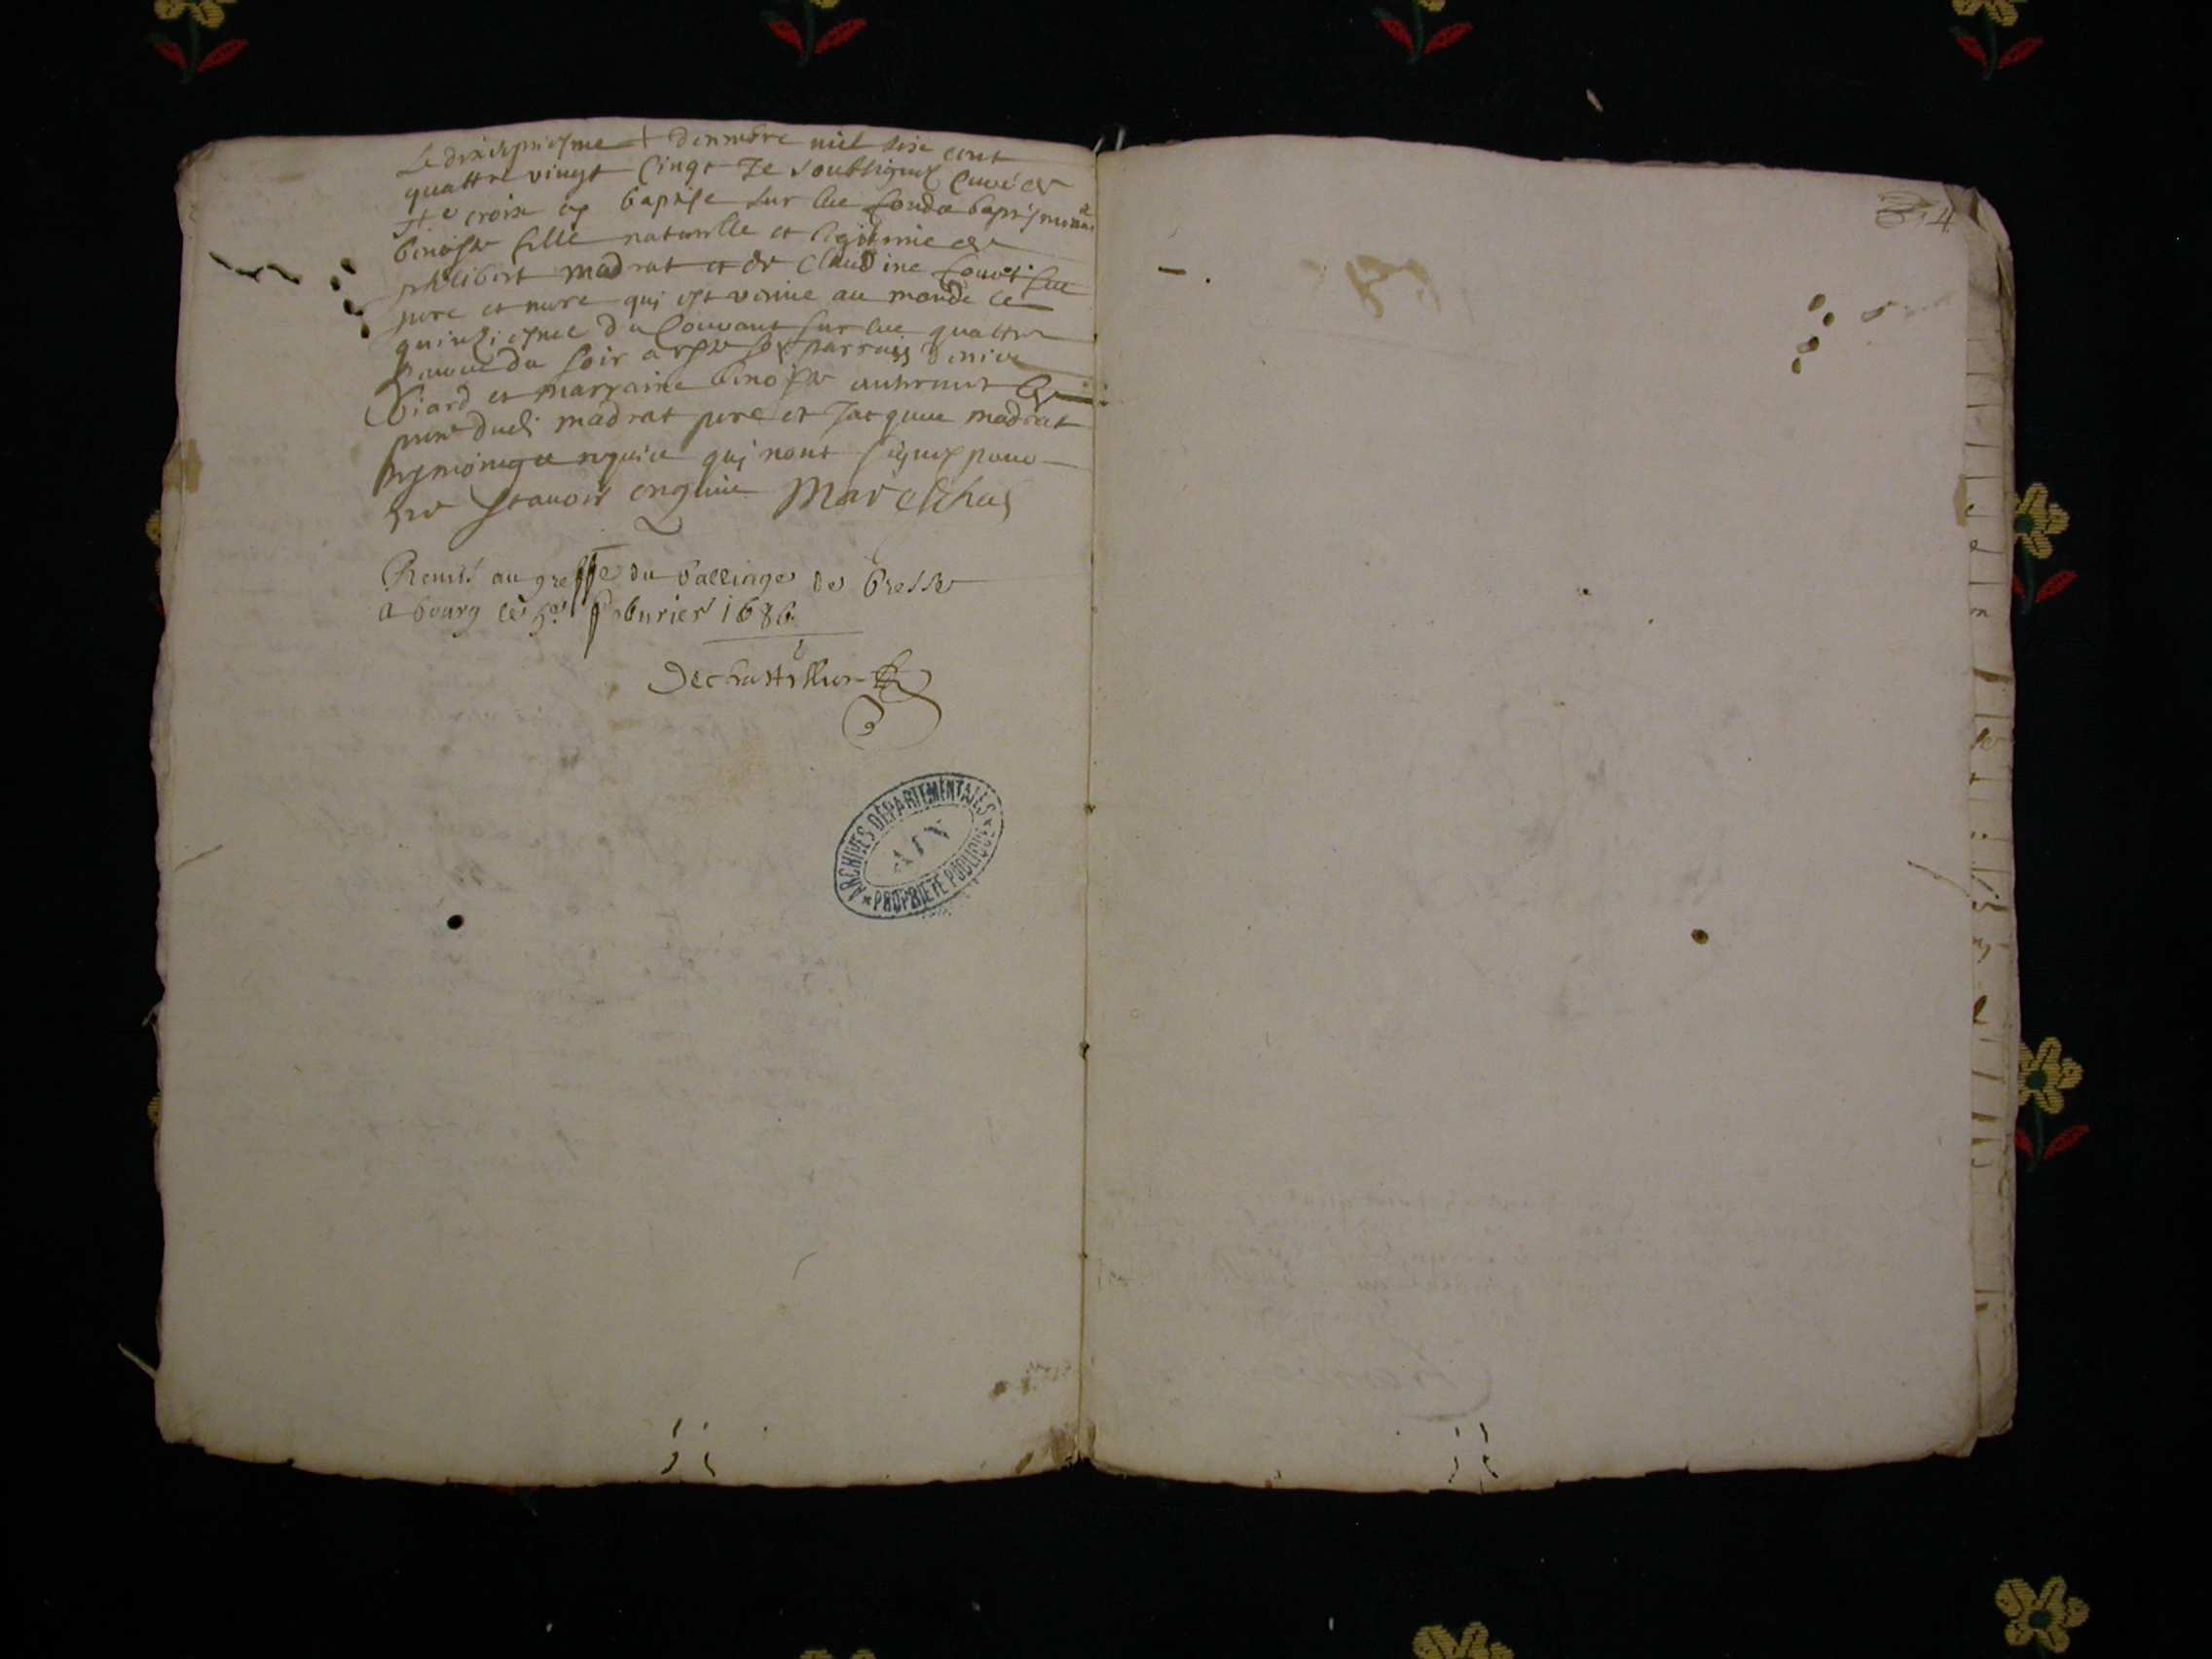 Le dixseptiesme decembre mil six cent
quattre vingt Cinq Je soubsigné Curé de
Ste croix ay baptise sur les fonds baptismaux
benoiste fille naturelle et legitime de
philibert madrat et de Claudine
pere et mere qui est venue au monde le
quinziesme du Courant sur les quattre
heures du soir a este son parrain Denis
Viard et marraine benoiste
madrat pere et Jacques madrat
tesmoings requis qui nont signés pour
ne scavoir enquis Mareschal
Remis au greffe du balliage de bresse
a bourg le 5e febvrier 1686
Dechastillon
ARCHIVES DÉPARTEMENTALES
AIN
PROPRIÉTÉ PUBLIQUE
4